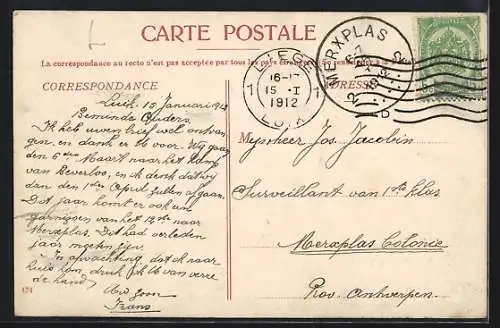 CARTE POSTALE
La correspondance au recto n'est pas acceptée par tous les pays étrangers.
CORRESPONDANCE
Luik 15 Januari 1912
Beminde Ouders
Ik heb uwen brief wel ontvan
gen, en dank er U voor. Wij gaan
den 6den Maart naar het kamp
van Beverloo, en ik denk dat wij
dan den 1sten April zullen afgaan.
Dit jaar komt er ook een
garnizoen van het 12ste naar
Merxplas. Dit had verleden
jaar moeten zijn.
In afwachting, dat ik naar
huis kom, druk ik U van verre
de hand
Uw zoon
Frans
124
LIEGE
16-17
15 - I
1912
LUIK
MERXPLAS
1912
Mijnheer Jos Jacobin
Surveillant van 1ste klas
Merxplas Colonie
Prov. Antwerpen